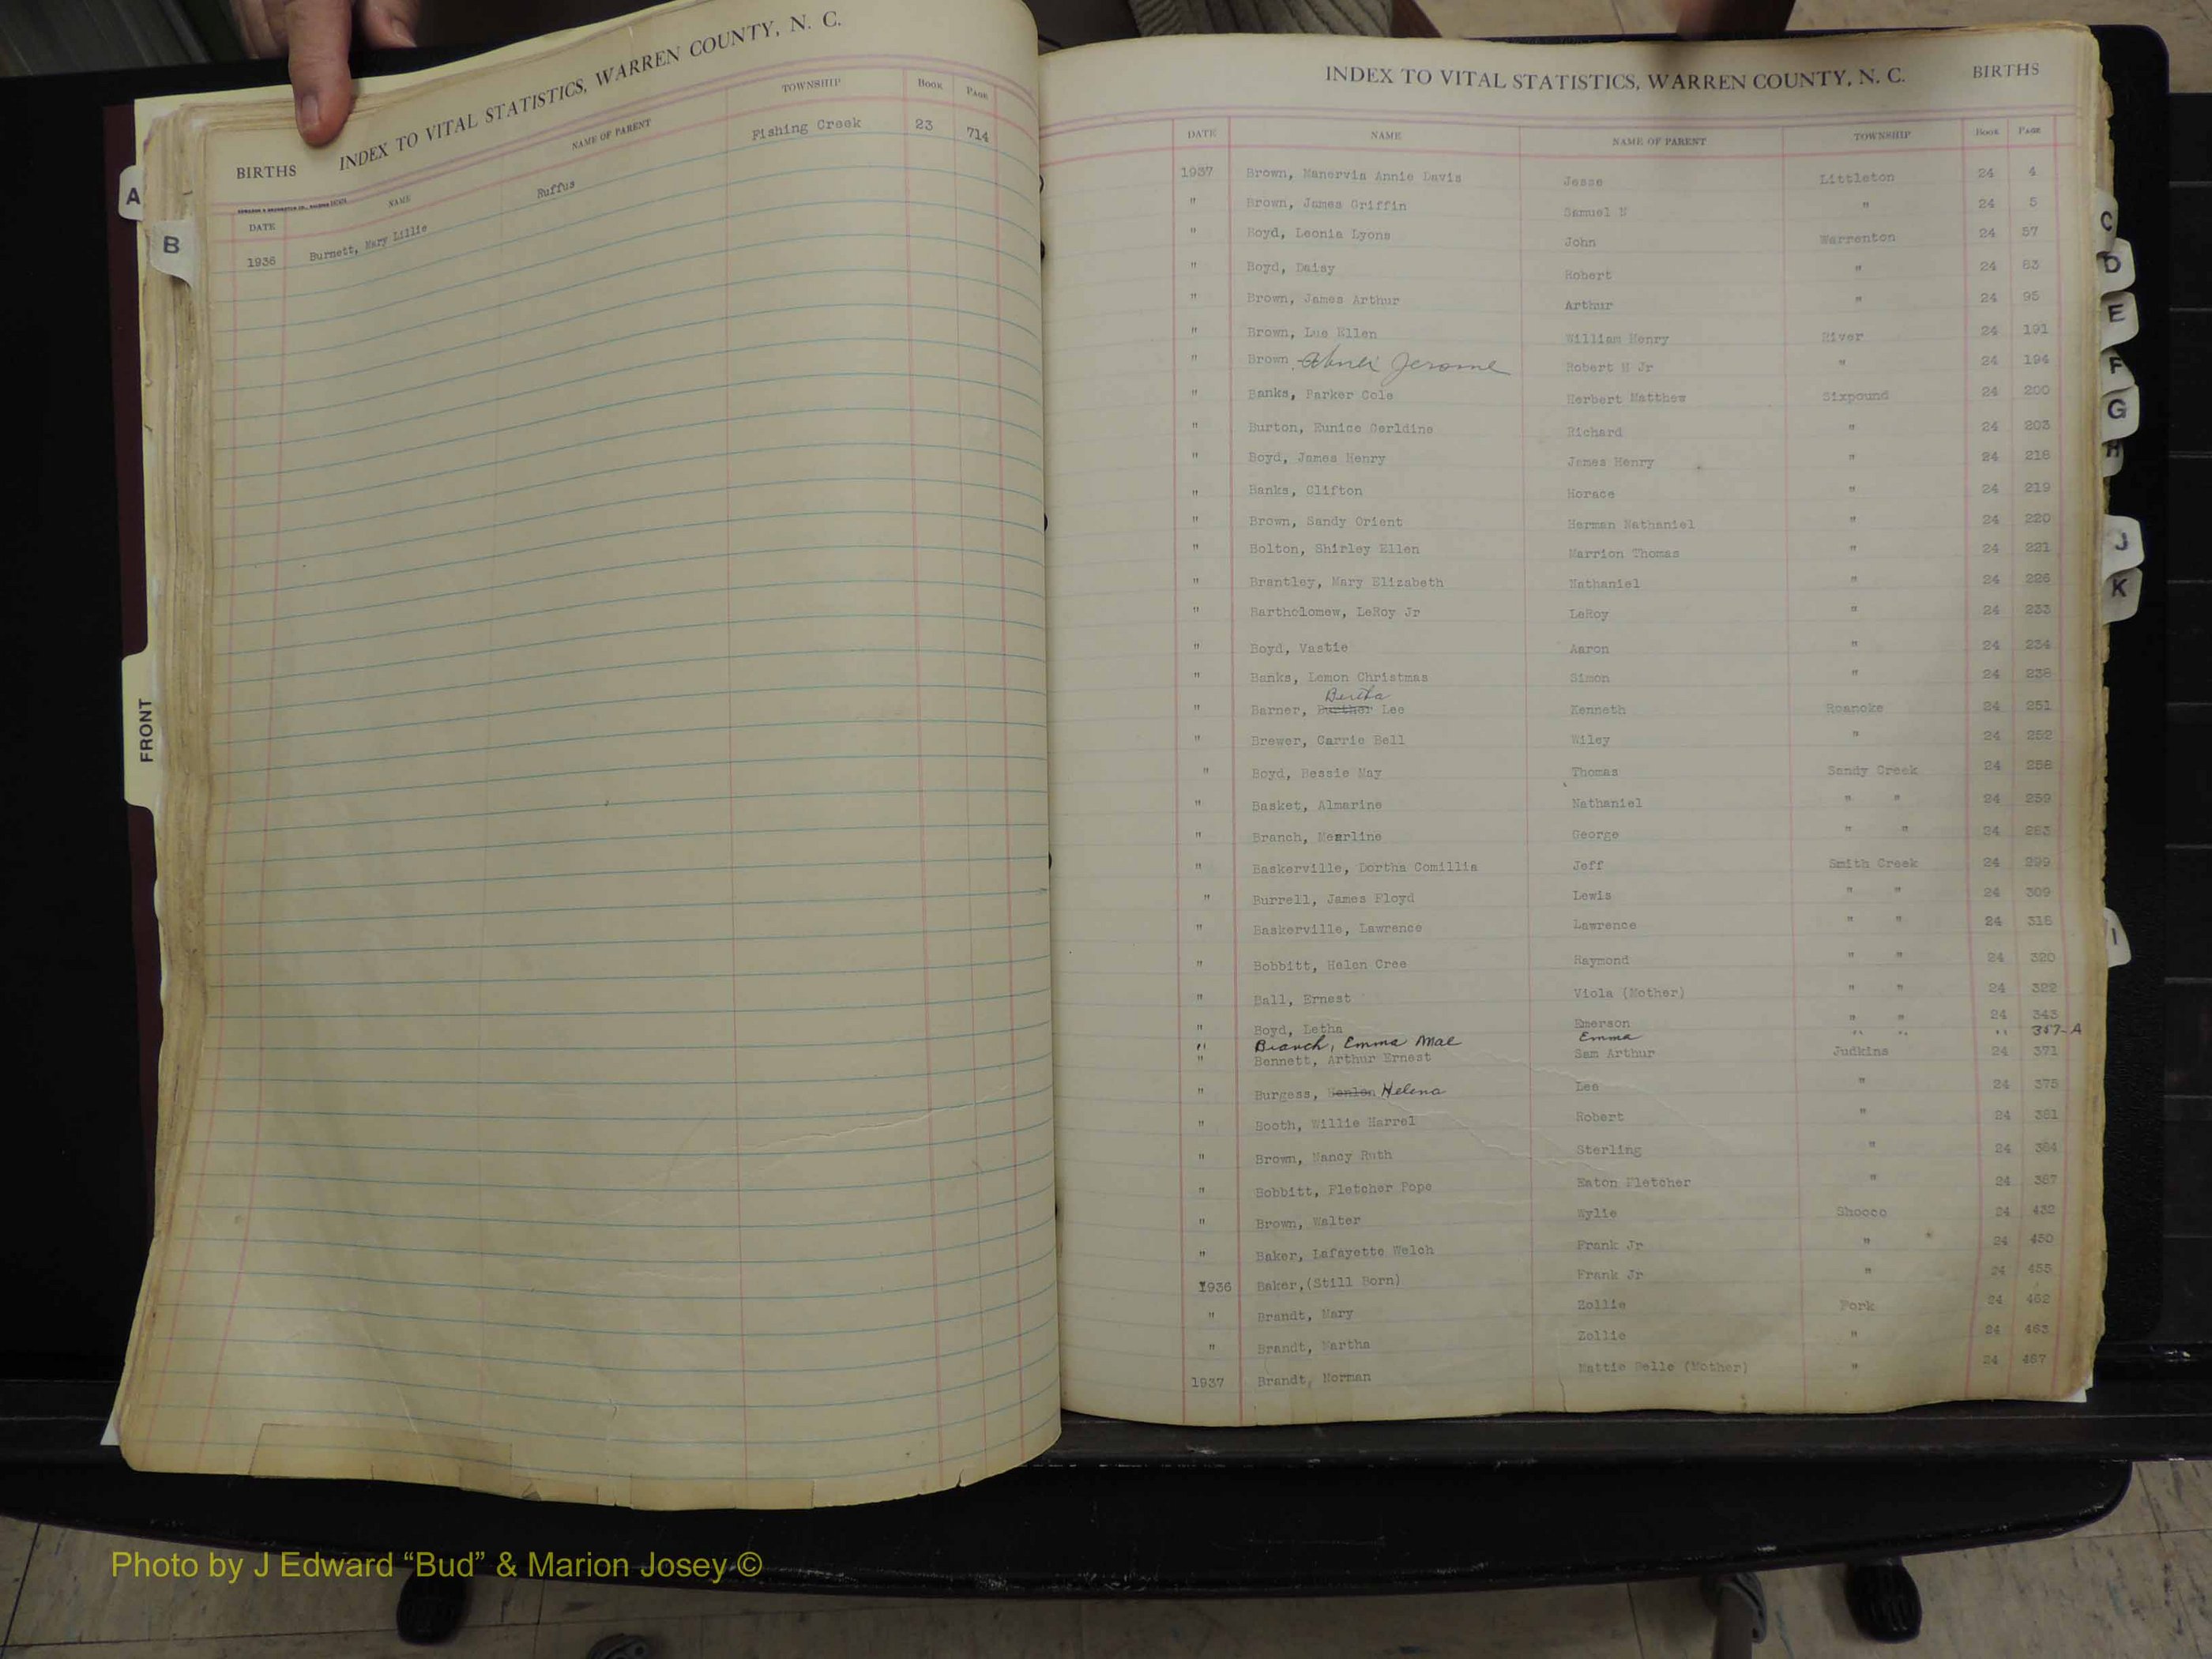 BIRTHS INDEX TO VITAL STATISTICS, WARREN COUNTY, N. C.
DATE NAME NAME OF PARENT TOWNSHIP BOOK PAGE
1936 Burnett, Mary Lillie Ruffus Fishing Creek 23 714
A
B
FRONT
INDEX TO VITAL STATISTICS, WARREN COUNTY, N. C. BIRTHS
DATE NAME NAME OF PARENT TOWNSHIP Book Page
1937 Brown, Manervia Annie Davis Jesse Littleton 24 4
" Brown, James Griffin Samuel " 24 5
" Boyd, Leonia Lyons John Warrenton 24 57
" Boyd, Daisy Robert " 24 83
" Brown, James Arthur Arthur " 24 95
" Brown, Lue Ellen William Henry River 24 191
" Brown, Jerome Robert H Jr " 24 194
" Banks, Parker Cole Herbert Matthew Sixpound 24 200
" Burton, Eunice Gerldine Richard " 24 203
" Boyd, James Henry James Henry " 24 218
" Banks, Clifton Horace " 24 219
" Brown, Sandy Orient Herman Nathaniel " 24 220
" Bolton, Shirley Ellen Marrion Thomas " 24 221
" Brantley, Mary Elizabeth Nathaniel " 24 226
" Bartholomew, LeRoy Jr LeRoy " 24 233
" Boyd, Vastie Aaron " 24 234
" Banks, Lemon Christmas Simon " 24 238
Bertha
" Barner, Burther Lee Kenneth Roanoke 24 251
" Brewer, Carrie Bell Wiley " 24 252
" Boyd, Bessie May Thomas Sandy Creek 24 258
" Basket, Almarine Nathaniel " " 24 259
" Branch, Mearline George " " 24 283
" Baskerville, Dortha Comillia Jeff Smith Creek 24 299
" Burrell, James Floyd Lewis " " 24 309
" Baskerville, Lawrence Lawrence " " 24 318
" Bobbitt, Helen Cree Raymond " " 24 320
" Ball, Ernest Viola (Mother) " " 24 322
" Boyd, Letha Emerson " " 24 343
" Branch, Emma Mae Emma " " " 357-A
" Bennett, Arthur Ernest Sam Arthur Judkins 24 371
" Burgess, Helena Lee " 24 375
" Booth, Willie Harrel Robert " 24 381
" Brown, Nancy Ruth Sterling " 24 384
" Bobbitt, Fletcher Pope Eaton Fletcher " 24 387
" Brown, Walter Wylie Shocco 24 432
" Baker, Lafayette Welch Frank Jr " 24 450
1936 Baker,(Still Born) Frank Jr " 24 455
" Brandt, Mary Zollie Fork 24 462
" Brandt, Martha Zollie " 24 463
1937 Brandt, Norman Mattie Belle (Mother) " 24 467
C
D
E
F
G
H
J
K
I
Photo by J Edward “Bud” & Marion Josey ©